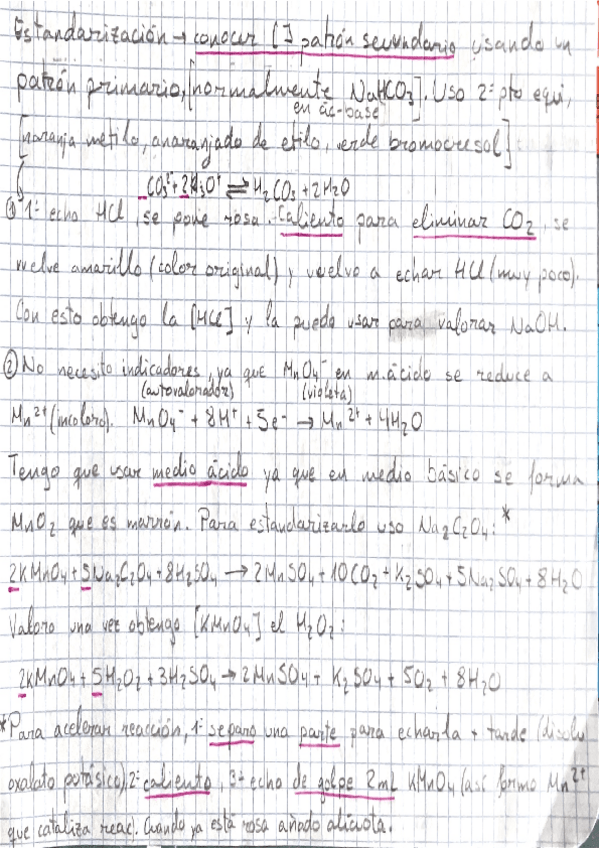 Estandarización → conocer [ ] patrón secundario usando un
patrón primario, [normalmente NaHCO3]. Uso 2º pto equi,
en ác-base
[naranja metilo, anaranjado de etilo, verde bromocresol]
CO3²⁻ + 2H3O⁺ ⇌ H2CO3 + 2H2O
① 1º echo HCl, se pone rosa. Caliento para eliminar CO2, se
vuelve amarillo (color original) y vuelvo a echar HCl (muy poco).
Con esto obtengo la [HCl] y la puedo usar para valorar NaOH.
② No necesito indicadores, ya que MnO4⁻ en m.ácido se reduce a
(autovalorador) (violeta)
Mn²⁺ (incoloro). MnO4⁻ + 8H⁺ + 5e⁻ → Mn²⁺ + 4H2O
Tengo que usar medio ácido ya que en medio básico se forma
MnO2 que es marrón. Para estandarizarlo uso Na2C2O4:*
2KMnO4 + 5Na2C2O4 + 8H2SO4 → 2MnSO4 + 10CO2 + K2SO4 + 5Na2SO4 + 8H2O
Valoro una vez obtengo [KMnO4] el H2O2:
2KMnO4 + 5H2O2 + 3H2SO4 → 2MnSO4 + K2SO4 + 5O2 + 8H2O
*Para acelerar reacción, 1º separo una parte para echarla + tarde (disolu
oxalato potásico), 2º caliento, 3º echo de golpe 2mL KMnO4 (así formo Mn²⁺
que cataliza reac). Cuando ya está rosa añado alícuota.